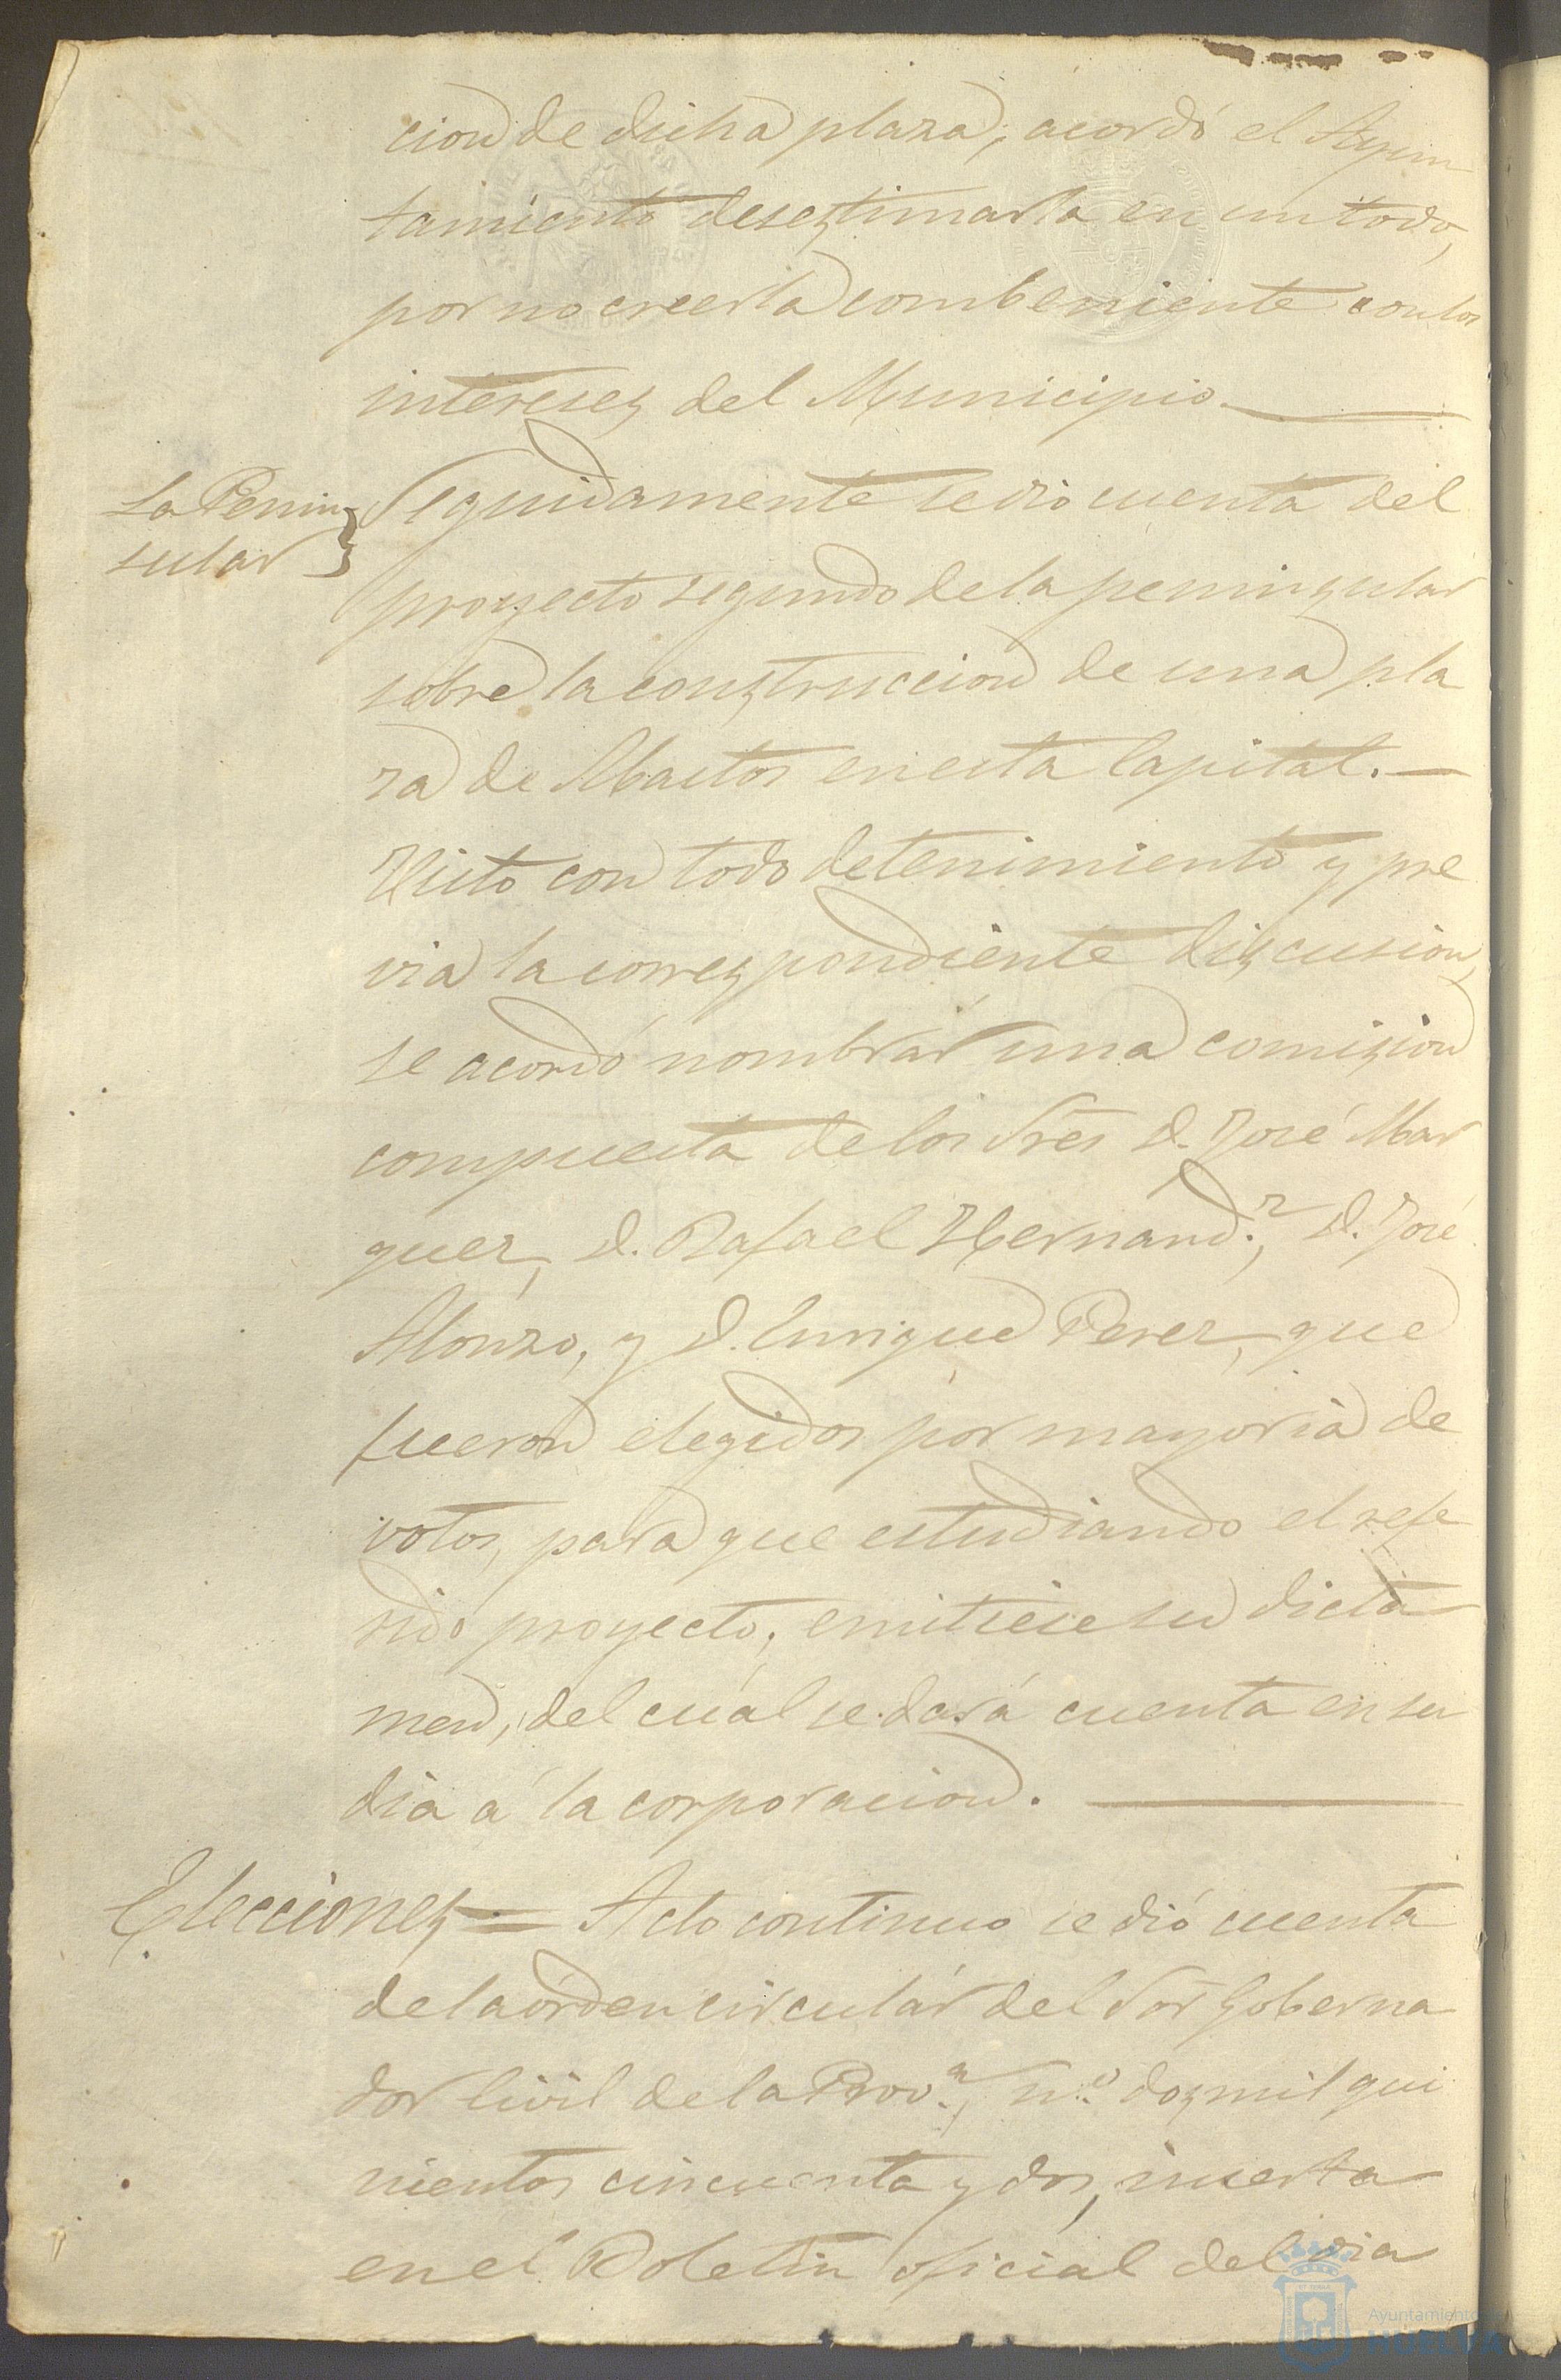 cion de dicha plaza, acordó el Ayun
tamiento desestimarla en un todo,
por no creerla combeniente con los
intereses del Municipio.
La Penin
sular
Seguidamente se dió cuenta del
proyecto segundo de la peninsular
sobre la construccion de una pla
za de Abastos en esta Capital.
Visto con todo detenimiento y pre
via la correspondiente discusion,
se acordó nombrar una comision
compuesta de los Sres D. José Mar
quez, D. Rafael Hernand.z, D. José
Alonzo, y D. Enrique Perez, que
fueron elegidos por mayoria de
votos, para que estudiando el refe
rido proyecto, emitiese su dicta
men, del cuál se dará cuenta en su
dia á la corporacion.
Elecciones = Acto continuo se dió cuenta
de la órden circulár del Sor Goberna
dor Civil de la Prov.a, n.o dos mil qui
nientos cincuenta y dos, inserta
en el Boletin oficial del dia
Ayuntamiento de
HUELVA